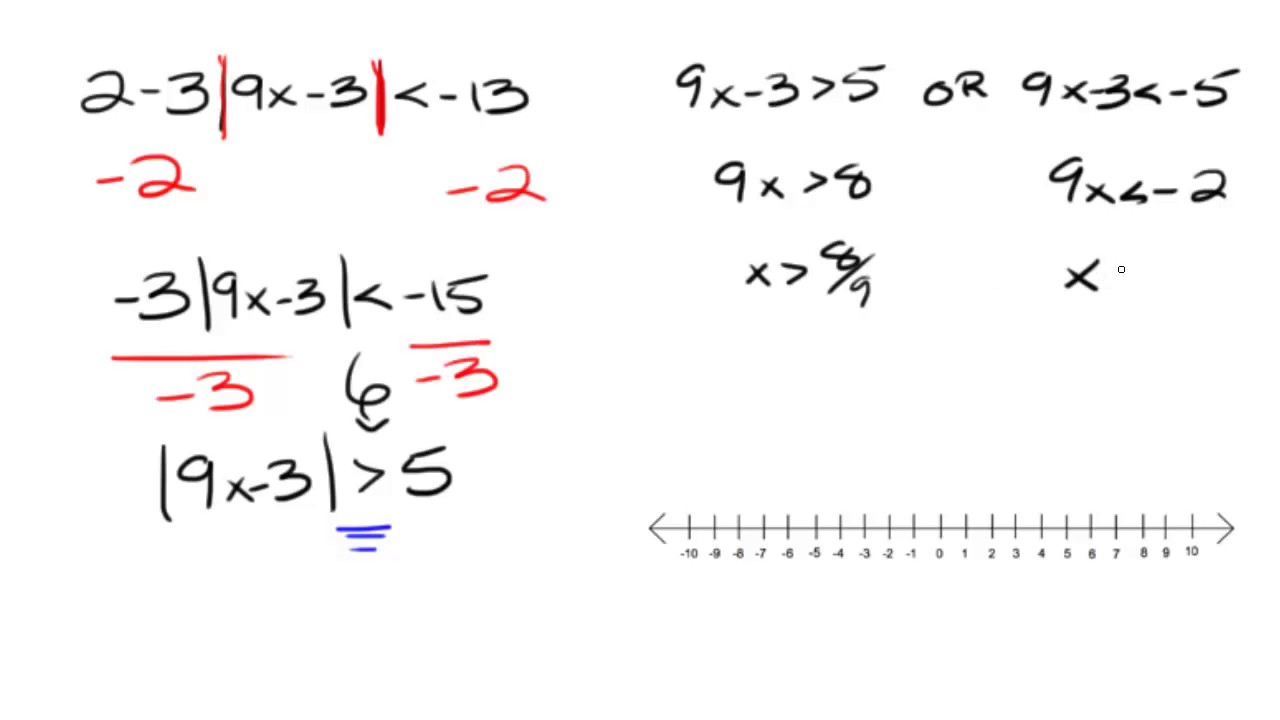 2-3|9x-3|<-13
-2 -2
-3|9x-3|<-15
-3 -3
|9x-3|>5
9x-3>5 OR 9x-3<-5
9x>8 9x<-2
x>8/9 x
-10 -9 -8 -7 -6 -5 -4 -3 -2 -1 0 1 2 3 4 5 6 7 8 9 10